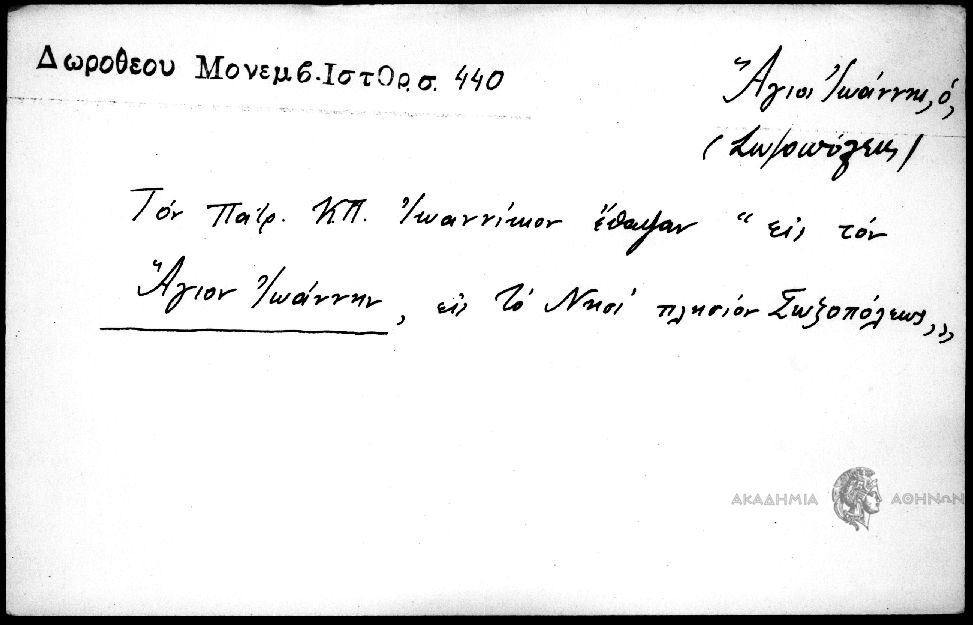 Δωροθεου Μονεμβ. Ιστορ σ. 440
Ἅγιος Ἰωάννης, ὁ,
(Σωζοπόλεως)
Τόν Πατρ. ΚΠ. Ἰωαννίκιον ἔθαψαν " εἰς τόν
Ἅγιον Ἰωάννην, εἰς τό Νησί πλησίον Σωζοπόλεως,,
ΑΚΑΔΗΜΙΑ ΑΘΗΝΩΝ